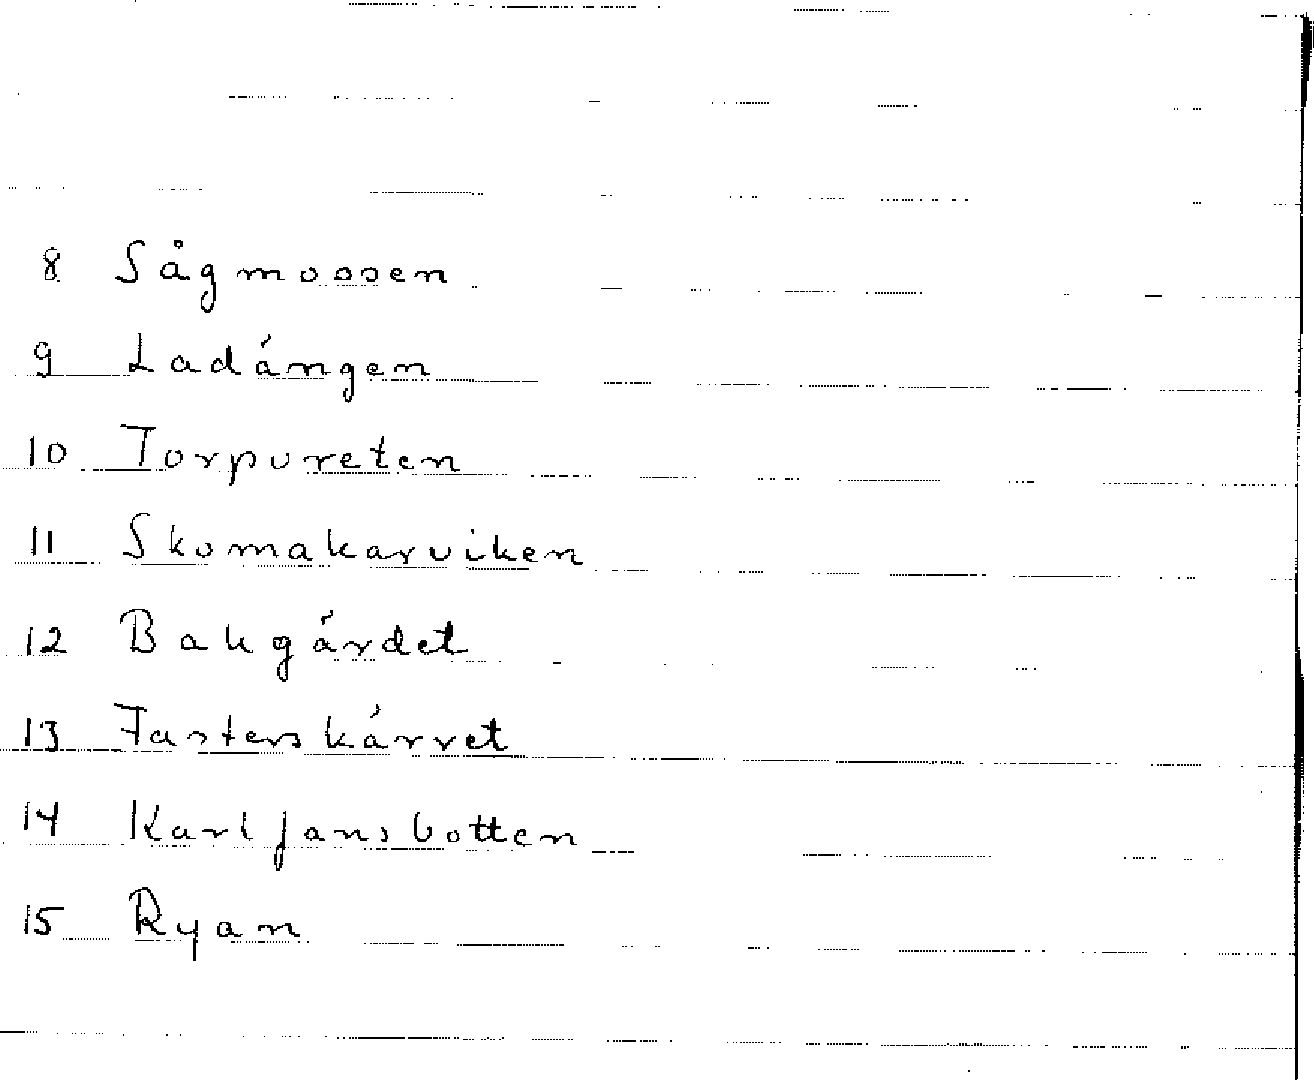 8 Sågmossen
9 Ladängen
10 Torpureten
11 Skomakarviken
12 Bakgärdet
13 Fasterskärret
14 Karljansbotten
15 Ryan